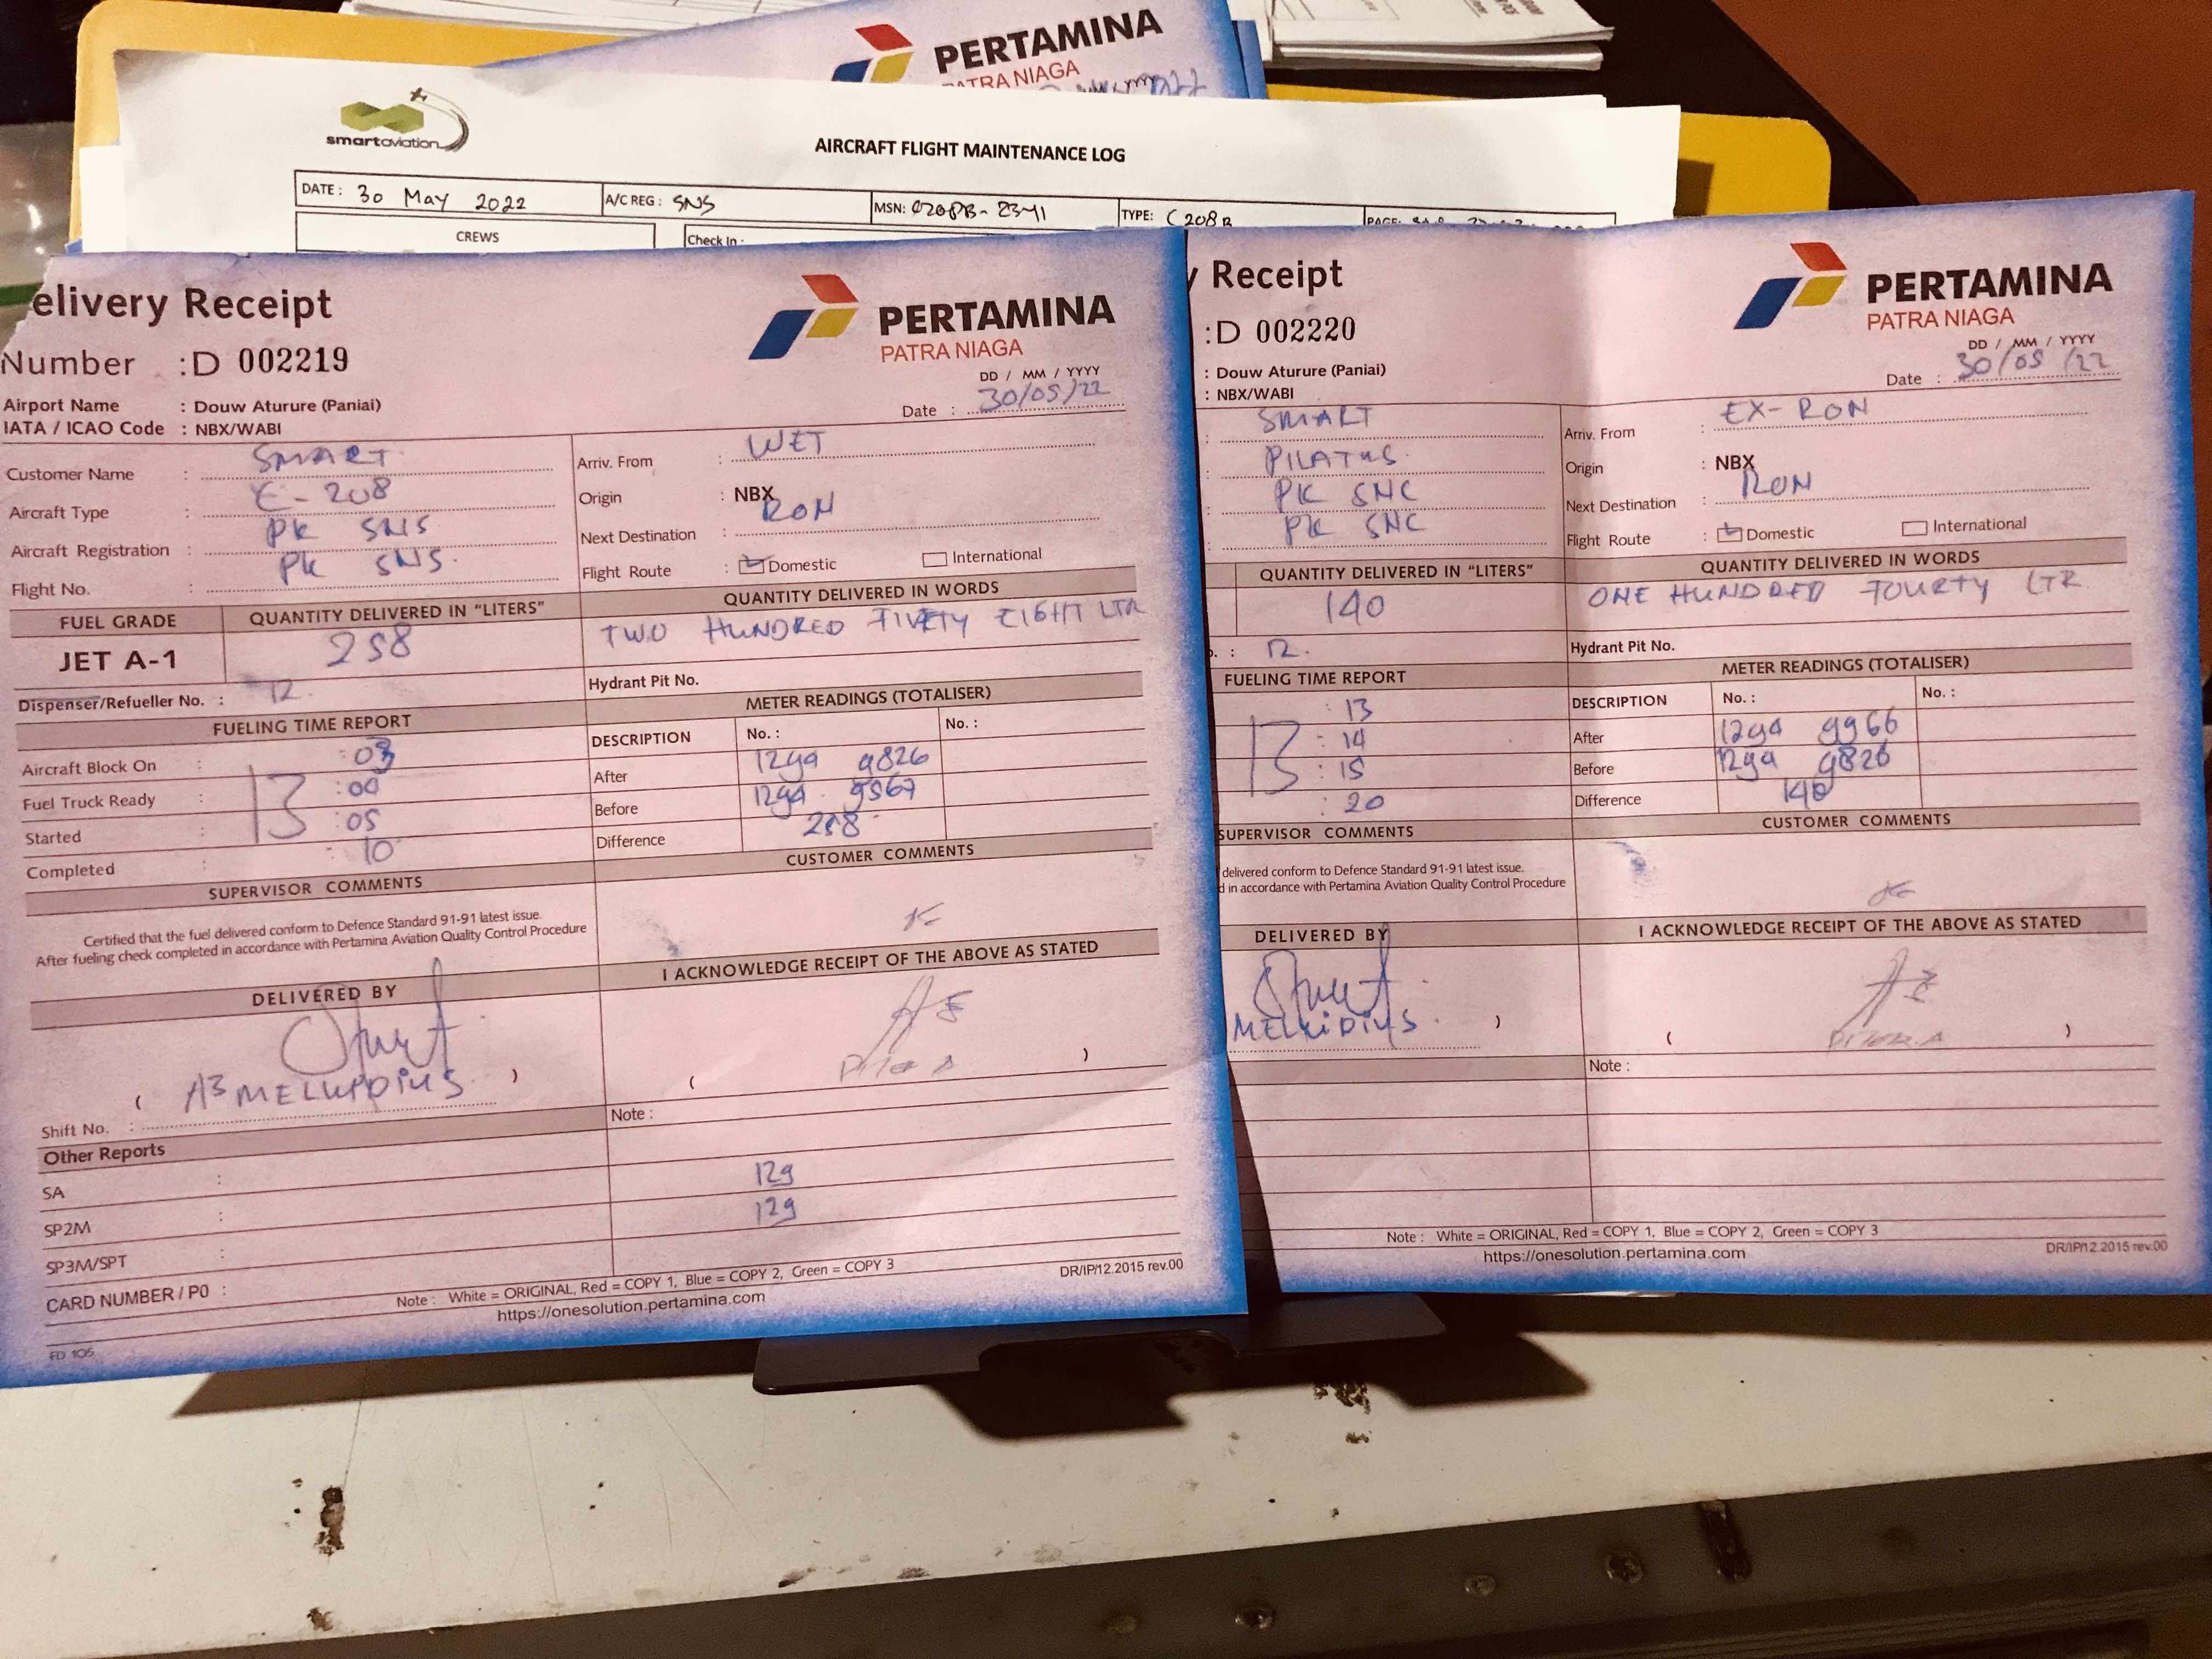 PERTAMINA
PATRA NIAGA
smartaviation
AIRCRAFT FLIGHT MAINTENANCE LOG
DATE : 30 May 2022 A/C REG : SNS MSN: TYPE: C 208 B PAGE:
CREWS Check In :
elivery Receipt
Number : D 002219
PERTAMINA
PATRA NIAGA
DD / MM / YYYY
Date : 30/05/22
Airport Name : Douw Aturure (Paniai)
IATA / ICAO Code : NBX/WABI
Customer Name : SMART
Aircraft Type : C-208
Aircraft Registration : PK SNS
Flight No. : PK SNS.
Arriv. From : WET
Origin : NBX
Next Destination : RON
Flight Route : Domestic International
FUEL GRADE QUANTITY DELIVERED IN "LITERS" QUANTITY DELIVERED IN WORDS
JET A-1 258 TWO HUNDRED FIVETY EIGHT LTR
Dispenser/Refueller No. : 12. Hydrant Pit No.
FUELING TIME REPORT METER READINGS (TOTALISER)
DESCRIPTION No. : No. :
Aircraft Block On : 13 : 03
Fuel Truck Ready : : 00
Started : : 05
Completed : : 10
After 1299 9826
Before 9567
Difference 258
SUPERVISOR COMMENTS CUSTOMER COMMENTS
Certified that the fuel delivered conform to Defence Standard 91-91 latest issue.
After fueling check completed in accordance with Pertamina Aviation Quality Control Procedure
DELIVERED BY I ACKNOWLEDGE RECEIPT OF THE ABOVE AS STATED
( )
( )
Shift No. :
Note :
Other Reports
SA : 129
SP2M : 129
SP3M/SPT :
CARD NUMBER / P0 :
Note : White = ORIGINAL, Red = COPY 1, Blue = COPY 2, Green = COPY 3
https://onesolution.pertamina.com
DR/IP/12.2015 rev.00
FD 105
y Receipt
: D 002220
PERTAMINA
PATRA NIAGA
DD / MM / YYYY
Date : 30/05/22
: Douw Aturure (Paniai)
: NBX/WABI
: SMART
: PILATUS.
: PK SNC
: PK SNC
Arriv. From : EX-RON
Origin : NBX
Next Destination : RON
Flight Route : Domestic International
QUANTITY DELIVERED IN "LITERS" QUANTITY DELIVERED IN WORDS
140 ONE HUNDRED FOURTY LTR
. : 12. Hydrant Pit No.
FUELING TIME REPORT METER READINGS (TOTALISER)
DESCRIPTION No. : No. :
13 : 13
: 14
: 15
: 20
After 1299 9966
Before 1299 9826
Difference 140
SUPERVISOR COMMENTS CUSTOMER COMMENTS
delivered conform to Defence Standard 91-91 latest issue.
d in accordance with Pertamina Aviation Quality Control Procedure
DELIVERED BY I ACKNOWLEDGE RECEIPT OF THE ABOVE AS STATED
MELKIDIUS. )
( )
Note :
Note : White = ORIGINAL, Red = COPY 1, Blue = COPY 2, Green = COPY 3
https://onesolution.pertamina.com
DR/IP/12.2015 rev.00